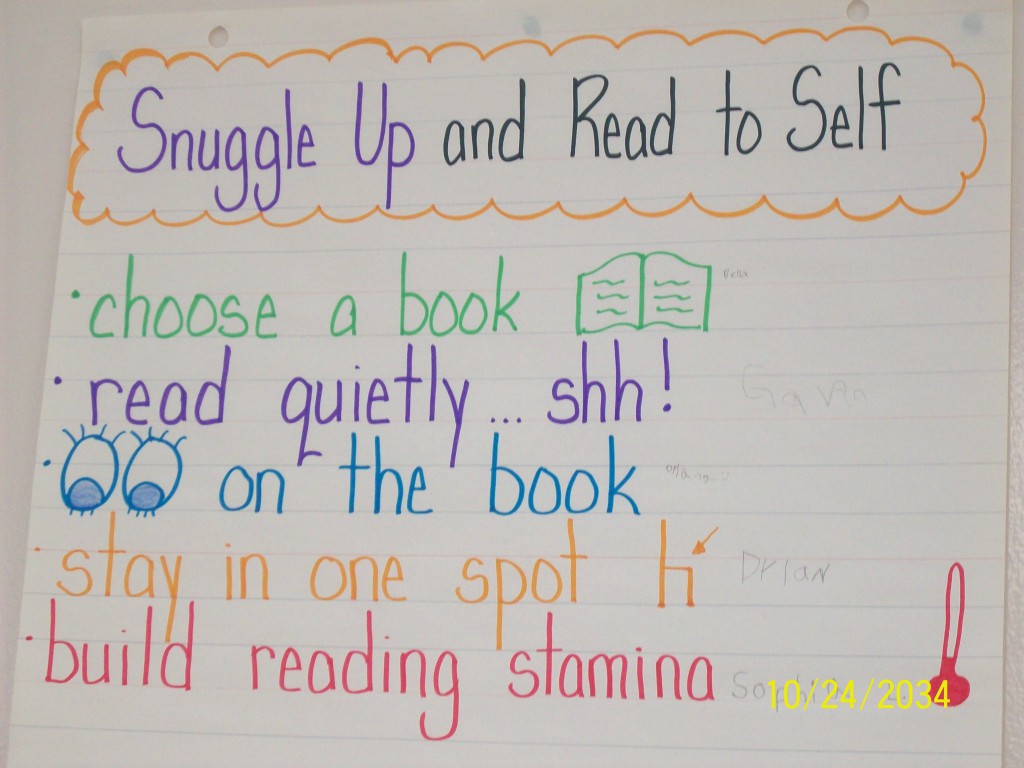 Snuggle Up and Read to Self
• choose a book
Bella
• read quietly... shh!
Gavin
• on the book
• stay in one spot
Dylan
• build reading stamina
10/24/2034